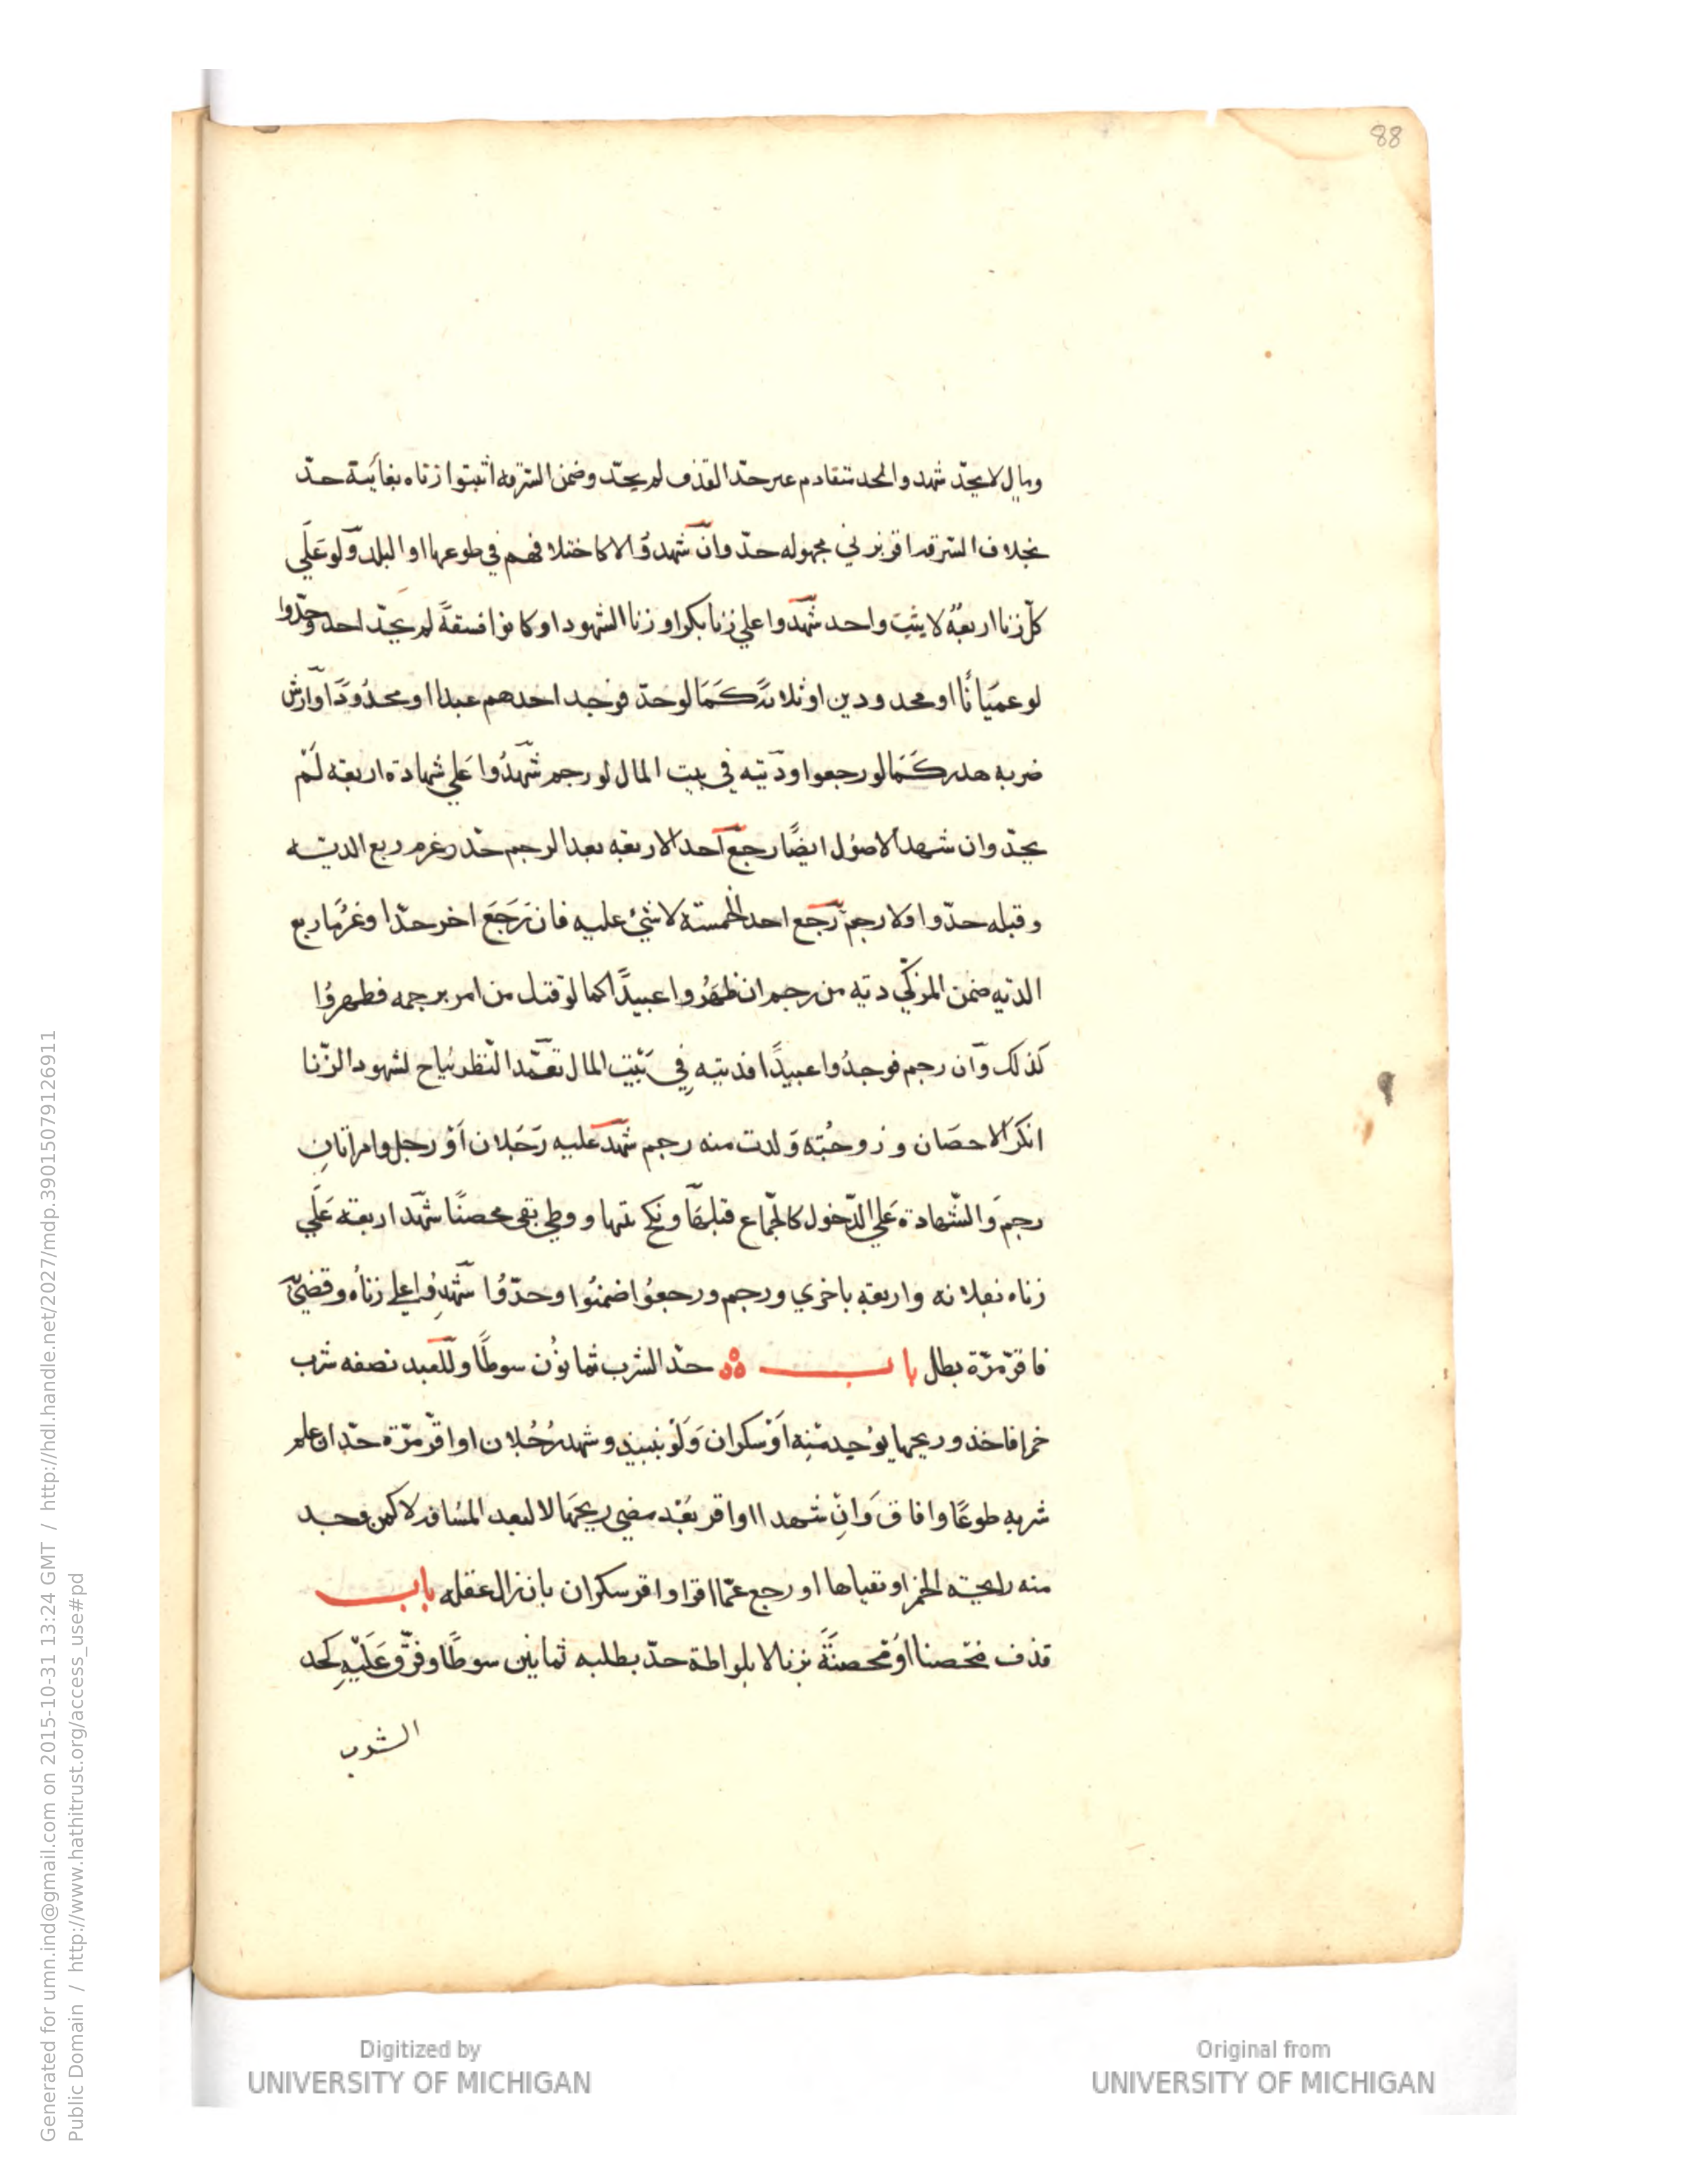 88
وبال لا يحدّ شهدوا بحد متقادم غير حدّ القذف لم يحدّ وضمن السرقة اثبتوا زناه بغايبة حدّ
بخلاف السرقة اقر بزني مجهوله حدّ وان شهدوا لا كاختلافهم في طوعها او البلد ولو علي
كلّ زنا اربعة لا يثبت واحد شهدوا علي زنا بكر او زنا الشهود او كانوا فسقة لم يحدّ احد وحدّوا
لو عميانًا او محدودين او ثلاثة كما لو حدّ فوجد احدهم عبدا او محدودًا وارش
ضربه هدر كما لو رجعوا وديته في بيت المال لو رجم شهدوا علي شهادة اربعة لم
يحدّ وان شهد الاصول ايضًا رجع احد الاربعة بعد الرجم حدّ وغرم ربع الدية
وقبله حدّوا ولا رجم رجع احد الخمسة لا شئ عليه فان رجع اخر حدّا وغرما ربع
الدية ضمن المزكّي دية من رجم ان ظهروا عبيدًا كما لو قتل من امر برجمه فظهروا
كذلك وان رجم فوجدوا عبيدًا فديته في بيت المال تعمّد النّظر يباح لشهود الزّنا
انكر الاحصان وزوجته ولدت منه رجم شهد عليه رجلان او رجل وامراتان
رجم والشّهادة علي الدّخول كالجماع قبلها ونكحتها ووطي بقي محصنًا شهد اربعة علي
زناه بفلانه واربعة باخري ورجم ورجعوا ضمنوا وحدّوا شهدوا علي زناه وقضي
فاقرّ مرّة بطل باب حدّ الشرب ثمانون سوطًا وللعبد نصفه شرب
خمرا فاخذ وريحها يوجد منه او سكران ولو بنبيذ وشهد رجلان او اقرّ مرّة حدّ ان علم
شربه طوعًا وافاق وان شهدا او اقر بعد مضي ريحها لا لبعد المسافة لا كمن وجد
منه رايحة الخمر او تقياها او رجع عمّا اقر او اقر سكران بان زال عقله باب
قذف محصنا او محصنة بزنا لا بلواطة حدّ بطلبه ثمانين سوطًا وفرّق عليه كحد
الشرب
Digitized by
UNIVERSITY OF MICHIGAN
Original from
UNIVERSITY OF MICHIGAN
Generated for umn.ind@gmail.com on 2015-10-31 13:24 GMT / http://hdl.handle.net/2027/mdp.39015079126911
Public Domain / http://www.hathitrust.org/access_use#pd